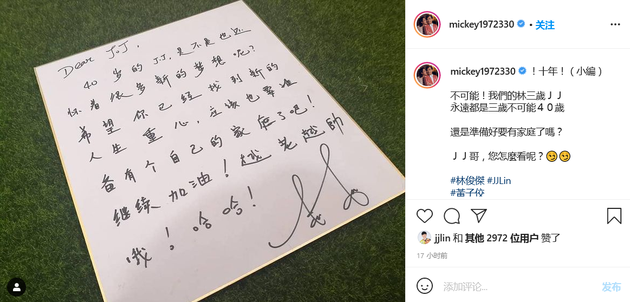 Dear JJ,
40 岁的 JJ, 是不是也还
怀着很多新的梦想呢?
希望你已经找到新的
人生重心, 应该也要准
备有个自己的家庭了吧!
继续加油! 越老越帅
哦! 哈哈!
mickey1972330 • 关注
mickey1972330 ！十年！（小編）
不可能！我們的林三歲ＪＪ
永遠都是三歲不可能４０歲
還是準備好要有家庭了嗎？
ＪＪ哥，您怎麼看呢？😏😏
#林俊傑 #JJLin
#黃子佼
jjlin 和 其他 2972 位用户 赞了
17 小时前
添加评论...
发布